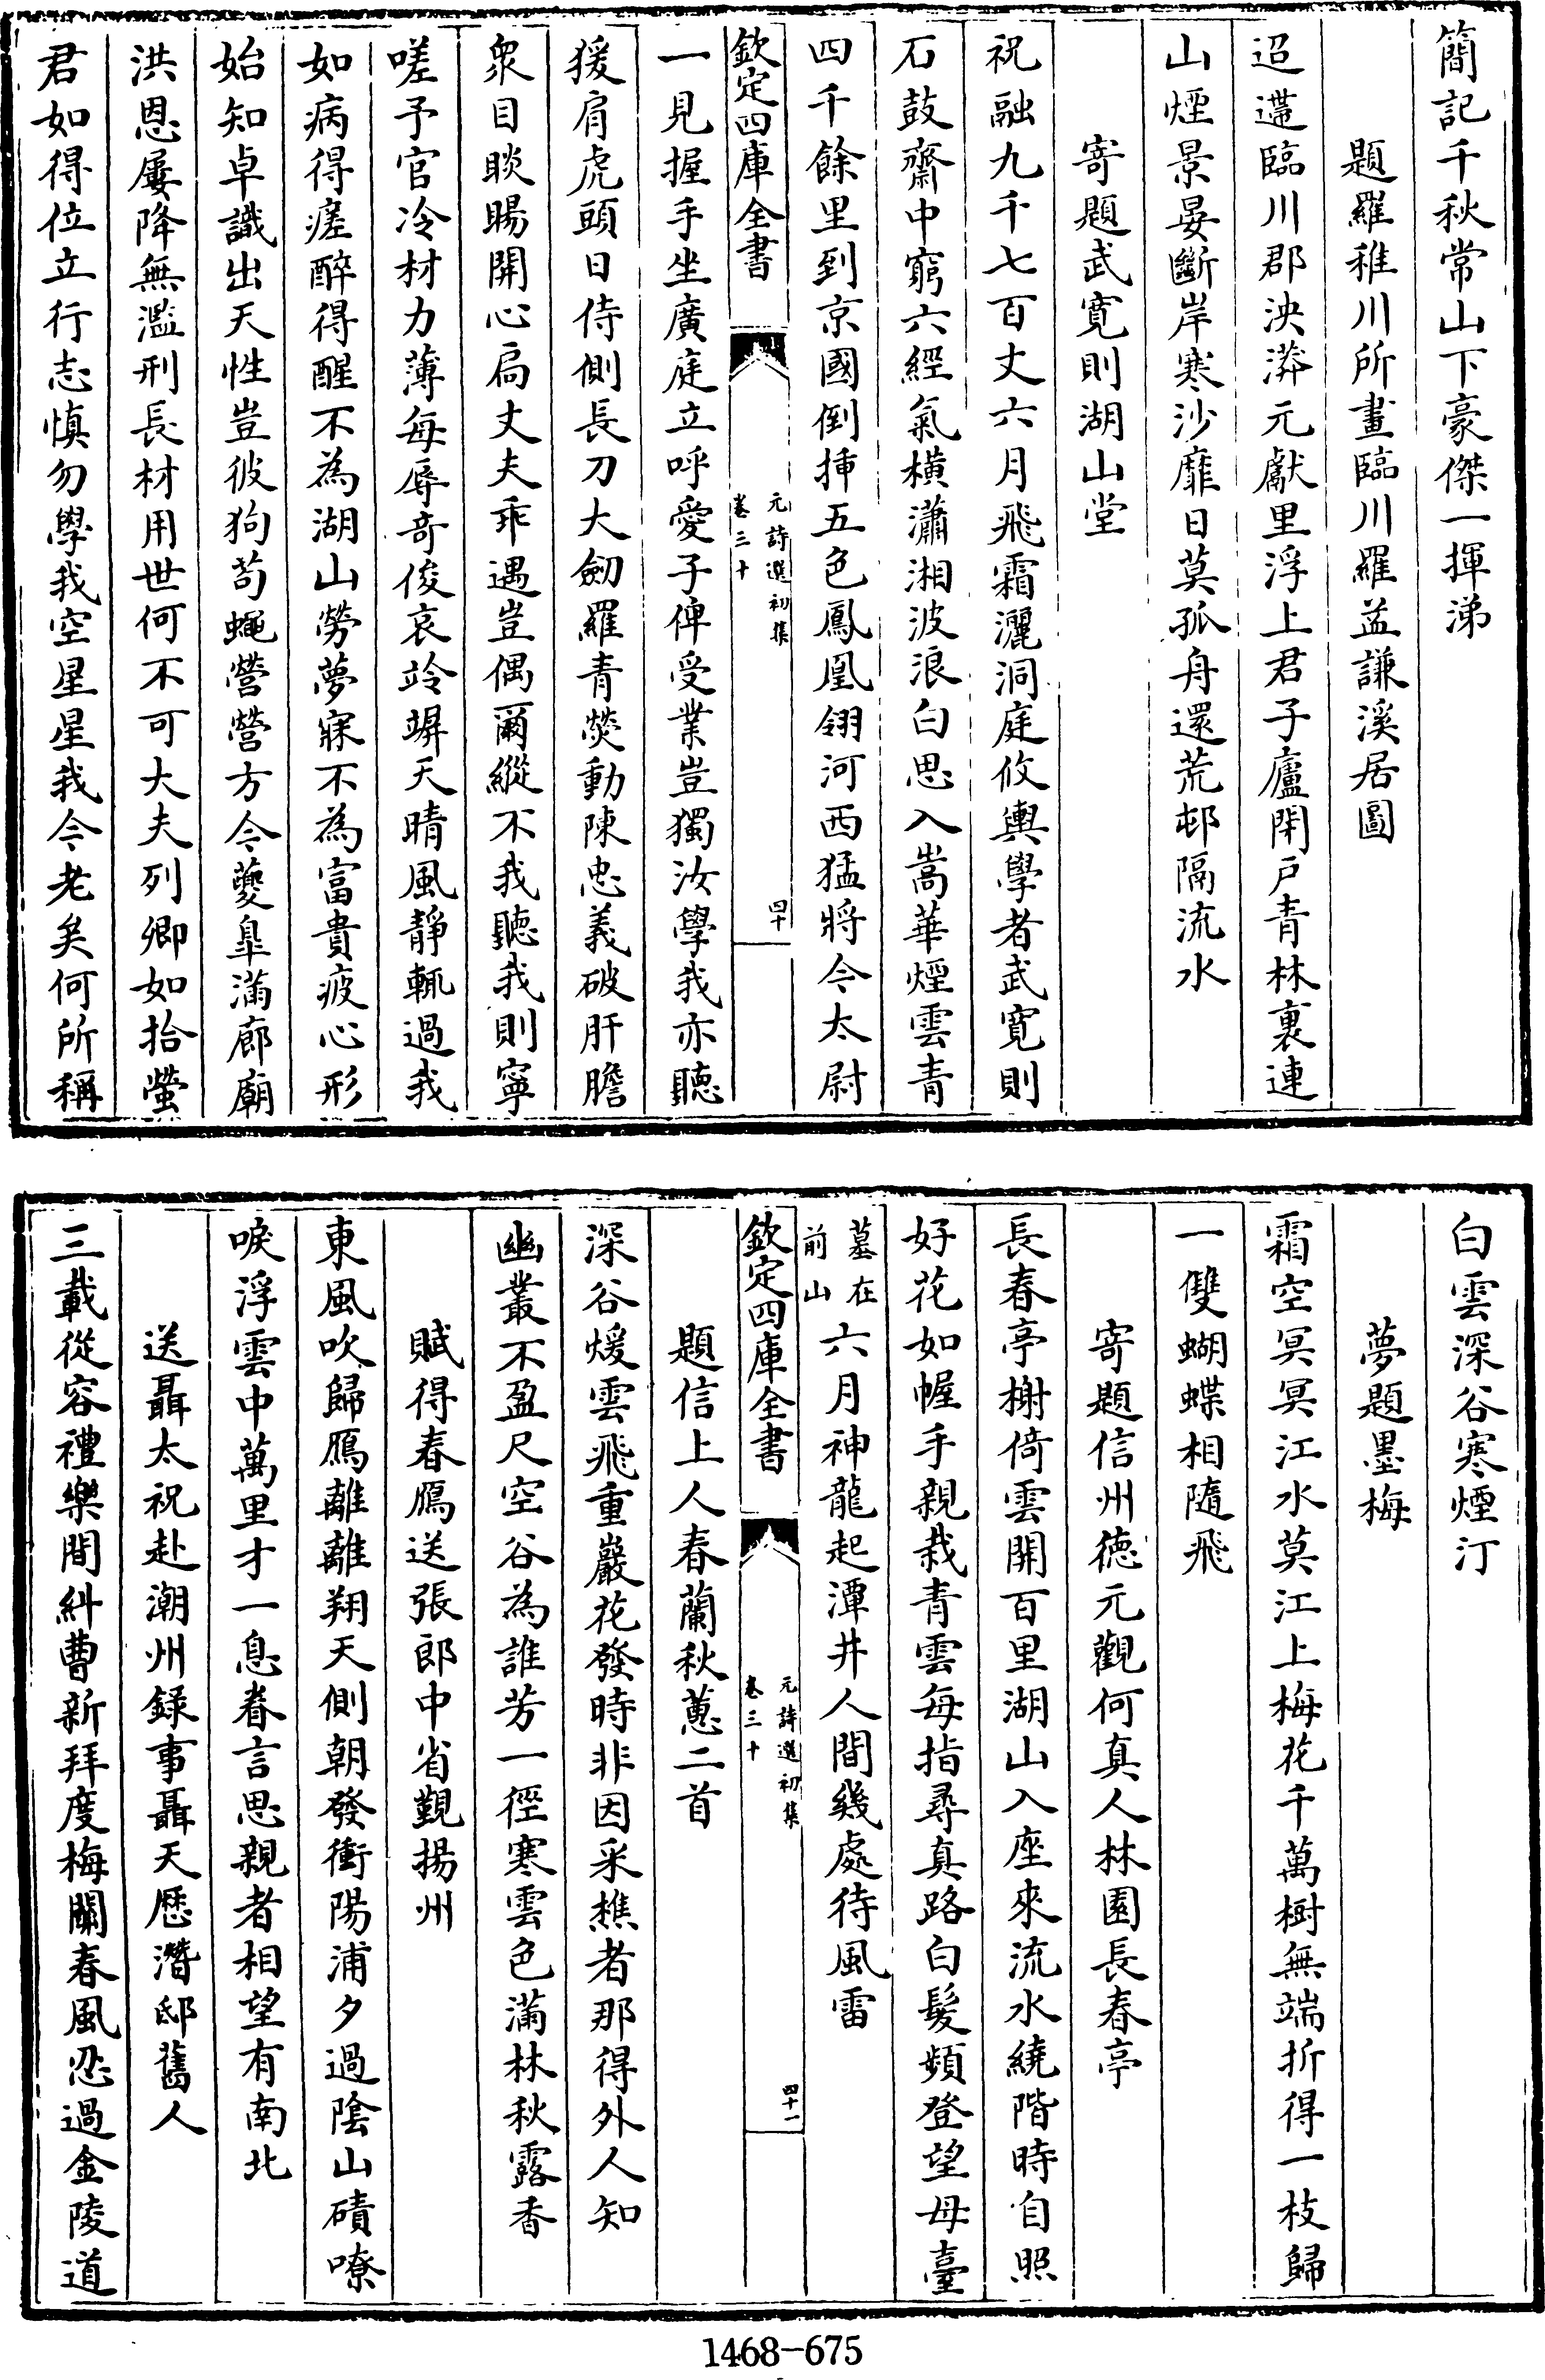 簡記千秋常山下豪傑一揮涕
題羅稚川所畫臨川羅益謙溪居圖
迢遰臨川郡泱漭元獻里浮上君子廬閉戸青林裏連
山煙景晏斷岸寒沙靡日莫孤舟還荒邨隔流水
寄題武寛則湖山堂
祝融九千七百丈六月飛霜灑洞庭攸輿學者武寛則
石鼓齋中窮六經氣橫瀟湘波浪白思入嵩華煙雲青
四千餘里到京國倒揷五色鳳凰翎河西猛將令太尉
欽定四庫全書
元詩選初集
卷三十
四十
一見握手坐廣庭立呼愛子俾受業豈獨汝學我亦聽
猨肩虎頭日侍側長刀大劒羅青熒動陳忠義破肝膽
衆目睒睗開心扃丈夫乖遇豈偶爾縱不我聽我則寧
嗟予官冷材力薄每辱奇俊哀竛竮天晴風靜輒過我
如病得瘥醉得醒不為湖山勞夢寐不為富貴疲心形
始知卓識出天性豈彼狗苟蠅營營方今夔臯滿廊廟
洪恩屢降無濫刑長材用世何不可大夫列卿如拾螢
君如得位立行志慎勿學我空星星我今老矣何所稱
白雲深谷寒煙汀
夢題墨梅
霜空冥冥江水莫江上梅花千萬樹無端折得一枝歸
一雙蝴蝶相隨飛
寄題信州德元觀何真人林園長春亭
長春亭榭倚雲開百里湖山入座來流水繞階時自照
好花如幄手親栽青雲每指尋真路白髮頻登望母臺
墓在
前山
六月神龍起潭井人間幾處待風雷
欽定四庫全書
元詩選初集
卷三十
四十一
題信上人春蘭秋蕙二首
深谷煖雲飛重巖花發時非因采樵者那得外人知
幽叢不盈尺空谷為誰芳一徑寒雲色滿林秋露香
賦得春鴈送張郎中省覲揚州
東風吹歸鴈離離翔天側朝發衝陽浦夕過陰山磧嘹
唳浮雲中萬里才一息眷言思親者相望有南北
送聶太祝赴潮州録事聶天歴潛邸舊人
三載從容禮樂間糾曹新拜度梅關春風忍過金陵道
1468-675